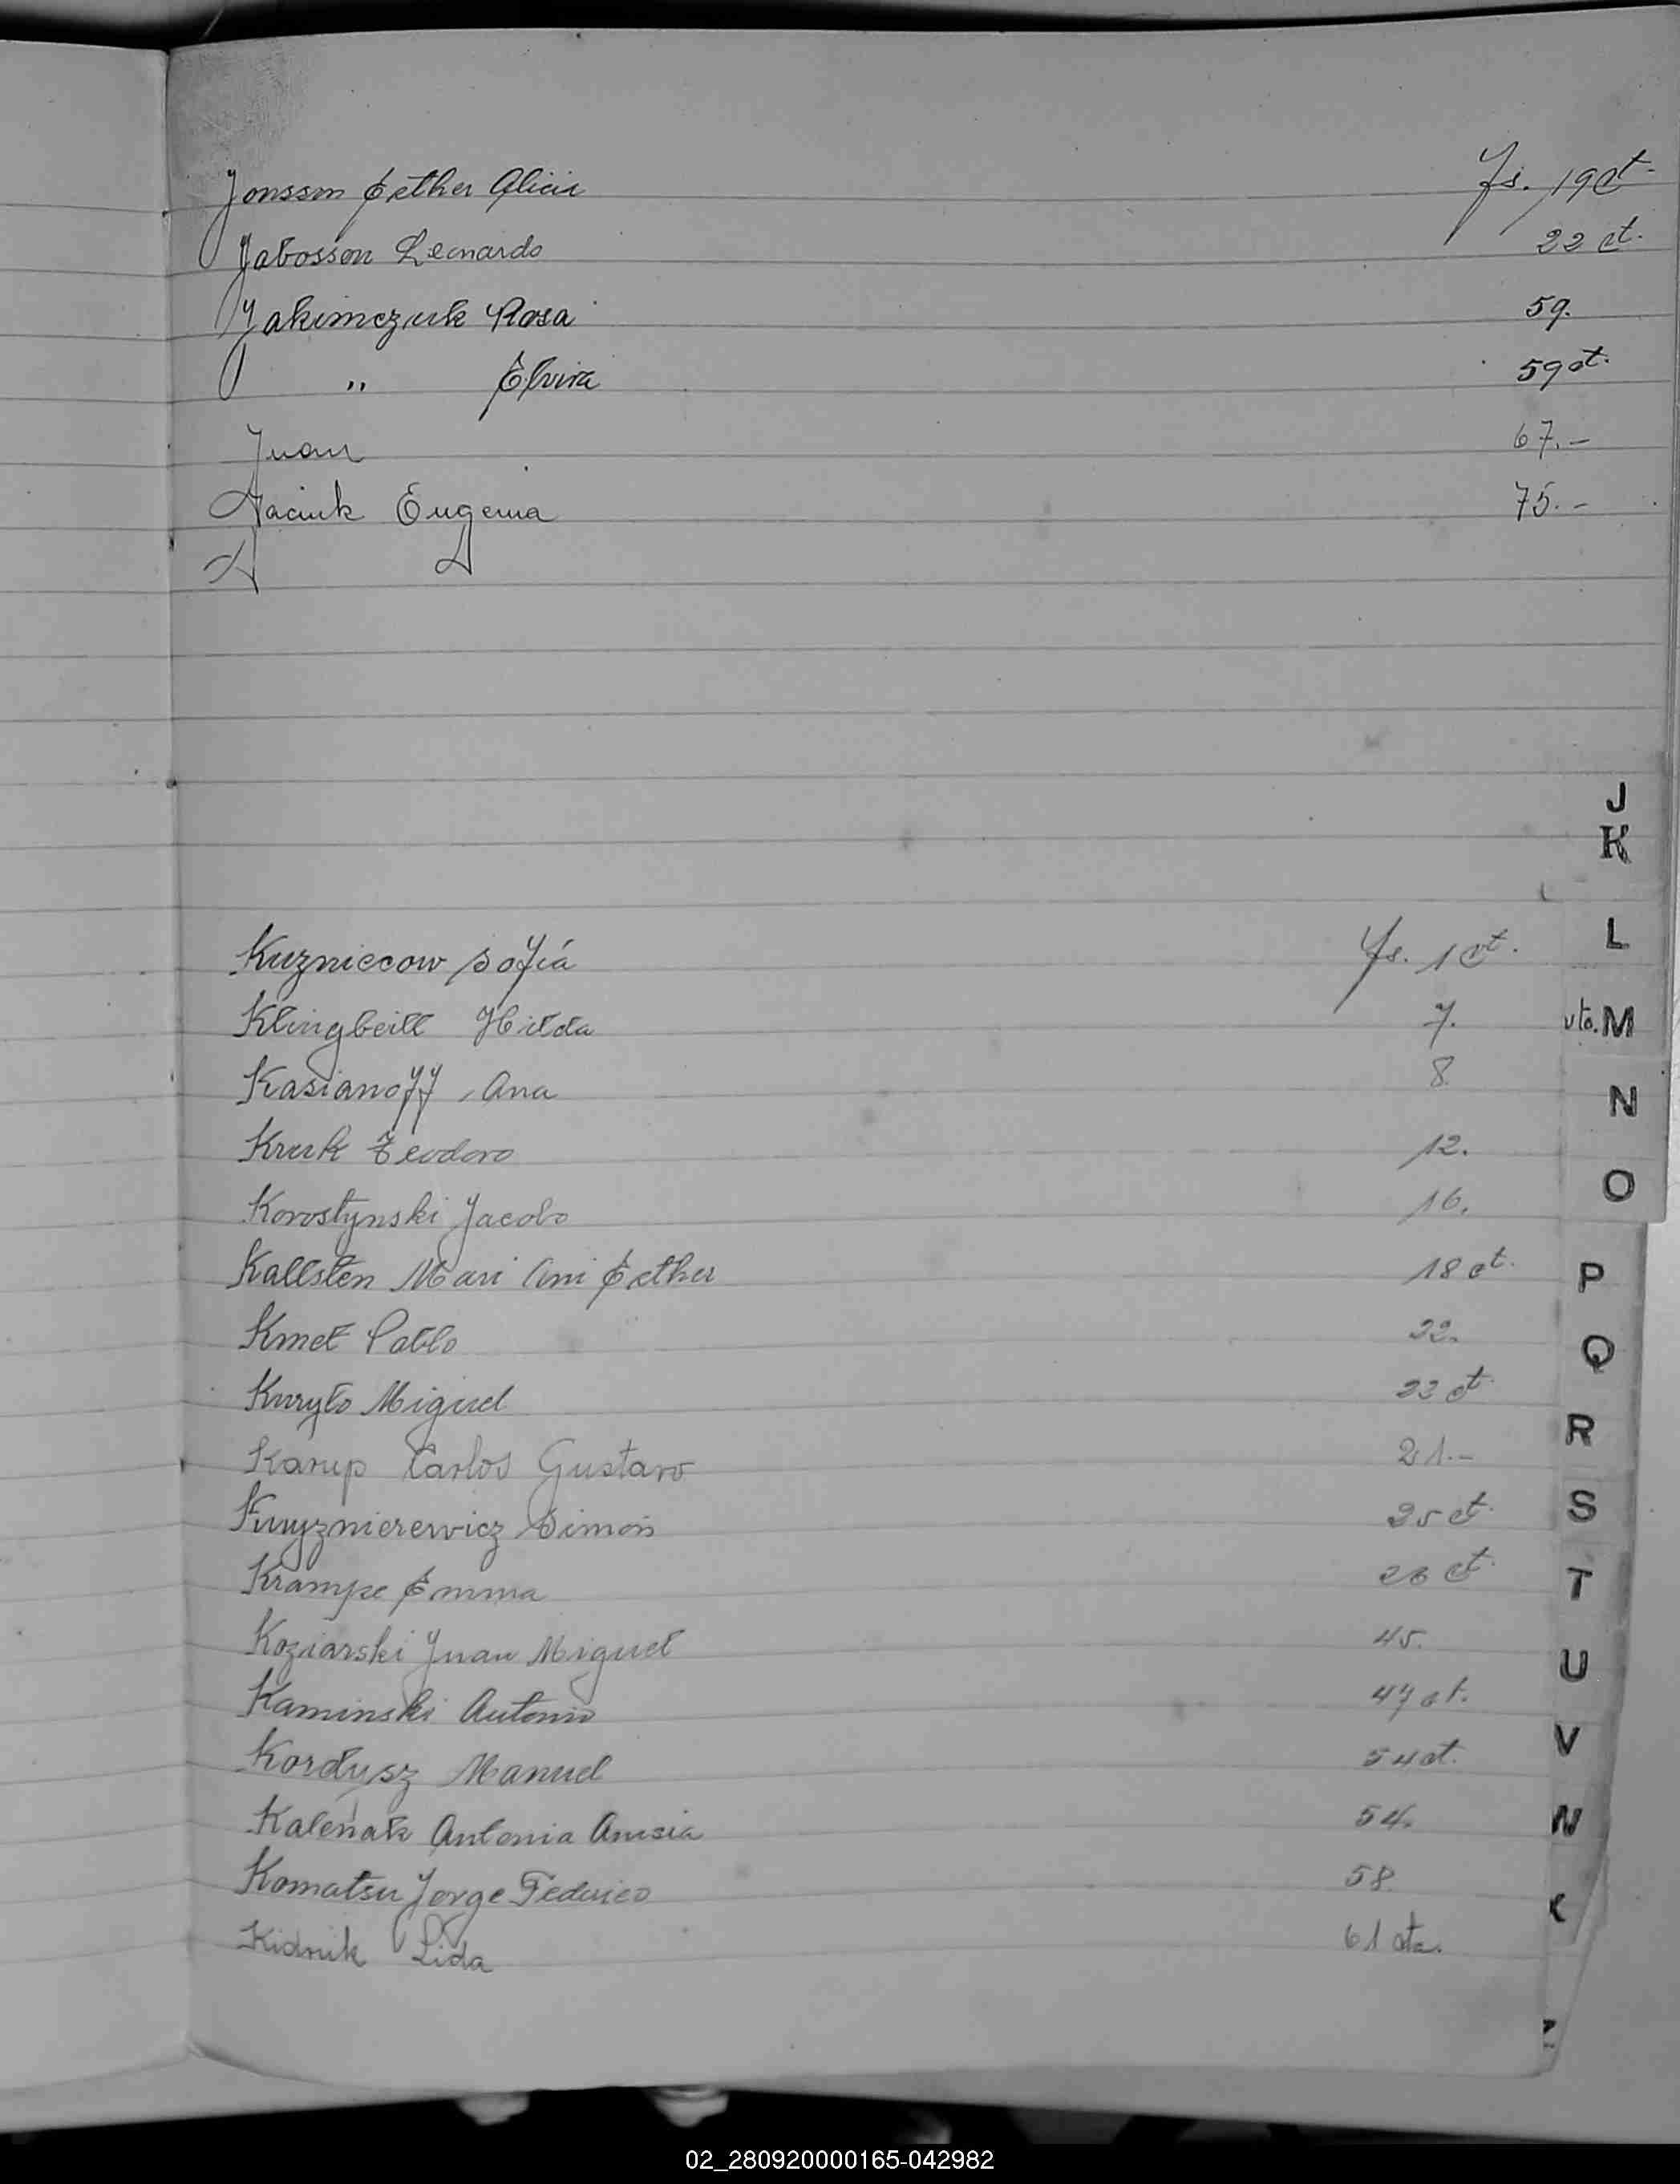 Jonsson Esther Alicia Fs. 19 ct.
Jabosson Leonardo 22 ct.
Jakimczuk Rosa 59.
" Elvira 59 ct.
Juan 67.-
Jaciuk Eugenia 75.-
J
K
Kuzniecow Sofía Fs. 1 ct.
L
Klingbeill Hilda 7.
vta. M
Kasianoff Ana 8
N
Kruk Teodoro 12.
O
Korostynski Jacobo 16.
Kallsten Mari Ani Esther 18 ct.
P
Kmet Pablo 22.
Q
Kuryło Miguel 23 ct.
R
Karup Carlos Gustavo 21.-
S
Simón 25 ct.
Krampe Emma 26 ct.
T
Koziarski Juan Miguel 45.
U
Kaminski Antonio 47 ct.
Kordysz Manuel 54 ct.
V
Kaleñak Antonia Anisia 54.
W
Komatsu Jorge Federico 58
Kidnik Lida 61 vta.
Z
02_280920000165-042982